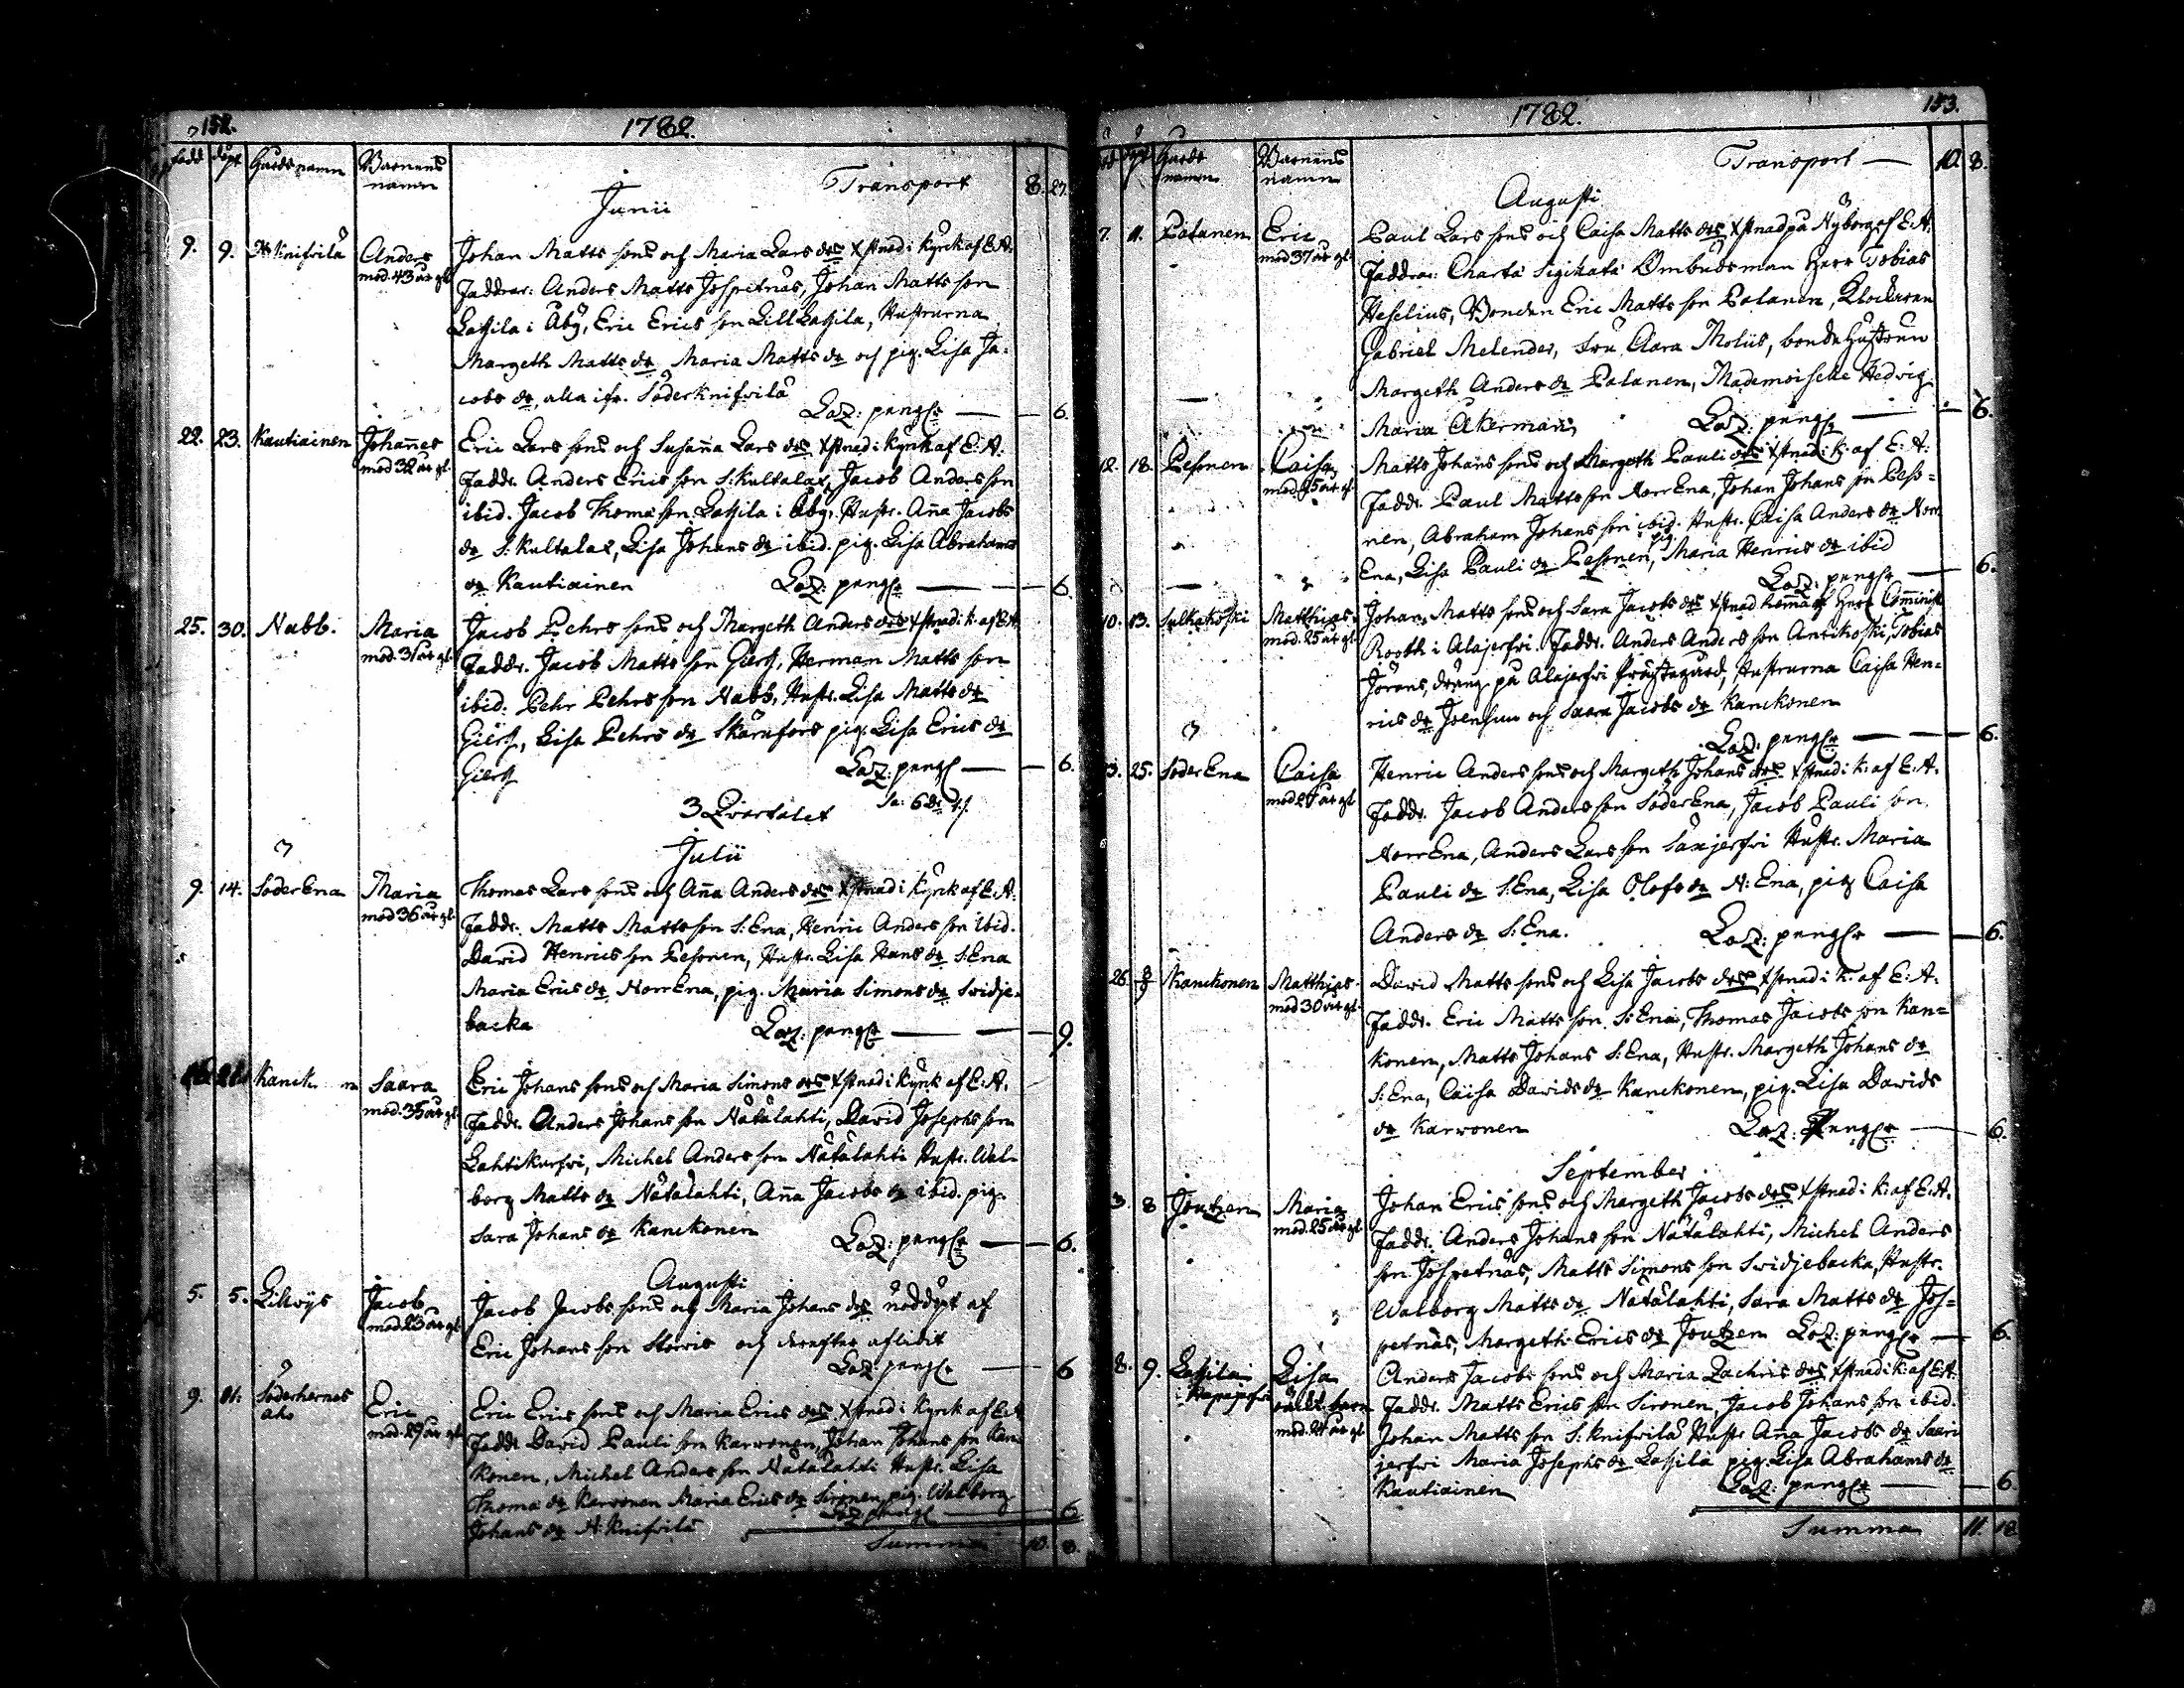 152.
1782.
född döpt Gårds namn Barnens namn
Transport 8. 27.
Junii
9. 9. Knifvilä Anders Johan Matts sons och Maria Lars drs Xstnad i Kyrck af E.A.
mod. 43 år gl. Faddrar: Anders Matts Jospetnäs, Johan Matts son
Lassila i Åby, Eric Erics son Lill Lassila, Hustrurna
Margeth Matts dr Maria Matts dr och pig. Lisa Ja-
cobs dr, alla ifr. Söderknifvilä
Laz: peng 6.
22. 23. Kautiainen Johannes Eric Lars sons och Susaña Lars drs Xstnad i Kyrk af E.A.
mod 32 år gl. Faddr. Anders Erics son S: Kultalax, Jacob Anders son
ibid. Jacob Thomæ son Lassila i Åby, Hustr. Aña Jacobs
dr S: Kultalax, Lisa Johans dr ibid. pig. Lisa Abrahams
dr Kautiainen Laz: peng 6.
25. 30. Nabb. Maria Jacob Pehrs sons och Margeth Anders drs Xstnad i k. af E.A.
mod. 31 år gl. Faddr. Jacob Matts son Giers, Herman Matts son
ibid. Pehr Pehrs son Nabb, Hustr. Lisa Matts dr
Giers, Lisa Pehrs dr Skärnfors pig. Lisa Erics dr
Giers Laz: peng 6.
3 Qvartalet
Julii
9. 14. Söder Ena Maria Thomas Lars sons och Aña Anders drs Xstnad i Kyrk af E.A.
mod 36 år gl. Faddr. Matts Matts son S: Ena, Henric Anders son ibid.
David Henrics son Pesonen, Hustr. Lisa Hans dr S: Ena
Maria Erics dr Norr Ena, pig. Maria Simons dr Svidje-
backa Laz: peng 9.
Kanck n Saara Eric Johans sons och Maria Simons drs Xstnad i Kyrk af E.A.
mod. 35 år gl. Faddr. Anders Johans son Nätälahti, David Josephs son
Lahtikurfvi, Michel Anders son Nätälahti Hustr. Wal-
borg Matts dr Nätälahti, Aña Jacobs dr ibid. pig.
Sara Johans dr Kanckonen Laz: peng 6.
Augusti
5. 5. Jacob Jacob Jacobs sons och Maria Johans drs nöddöpt af
mod. 23 år gl. Eric Johans son och derefter aflidit
Laz: peng 6
9. 11. Söderhernes aho Eric Eric Erics sons och Maria Erics drs Xstnad i Kyrck af E.A.
mod. 29 år gl. Faddr David Pauli son Karvonen, Johan Johans son Kanc-
konen, Michel Anders son Nätälahti Hustr. Lisa
Thomæ dr Karvonen Maria Erics dr Sironen pig. Walborg
Johans dr N: Knifvilä Laz: peng 6
Summa 10. 8.
153.
1782.
Gårds namn Barnens namn Transport 10. 8.
Augusti
7. 11. Palanen Eric Paul Lars sons och Caisa Matts drs Xstnad på Nyborg af E.A.
mod 37 år gl. Faddrar: Charta Sigillata Ombudsman Herr Tobias
Heselius, Bonden Eric Matts son Palanen, Klockaren
Gabriel Melender, fru Molis, bonde hustrun
Margeth Anders dr Palanen, Mademoiselle Hedvig
Maria Åkerman, Laz: peng 6.
12. 18. Pesonen Caisa Matts Johans sons och Margeth Pauli drs Xstnad i k. af E: A:
Faddr. Paul Matts son Norr Ena, Johan Johans son Peso-
nen, Abraham Johans son ibid. Hustr. Caisa Anders dr Norr
Ena, Lisa Pauli dr Pesonen, pig. Maria Henrics dr ibid
Laz: peng 6.
10. 13. Sulkakoski Matthias Johan Matts sons och Sara Jacobs drs Xstnad af Herr Cominist.
mod. 25 år gl. Rooth i Alajerfvi. Faddr. Anders Anders son Antikoski, Tobias
Jörans, dräng på Alajerfvi Prästegård, Hustrurna Caisa Hen-
rics dr Joensuu och Saara Jacobs dr Kanckonen
Laz: peng 6.
25. Söder Ena Caisa Henric Anders sons och Margeth Johans drs Xstnad i k: af E.A.
mod 27 år gl Faddr. Jacob Anders son Söder Ena, Jacob Pauli son
Norr Ena, Anders Lars son Sanjerfvi Hustr. Maria
Pauli dr S: Ena, Lisa Olofs dr N: Ena, pig Caisa
Anders dr S: Ena. Laz: peng 6.
26. 8/9 Kanckonen Matthias David Matts sons och Lisa Jacobs drs Xstnad i k. af E: A.
mod 30 år gl. Faddr. Eric Matts son S: Ena, Thomas Jacobs son Kan-
konen, Matts Johans S: Ena, Hustr. Margeth Johans dr
S: Ena, Caisa Davids dr Kanckonen, pig. Lisa Davids
dr Karvonen Laz: peng 6.
September
3. 8 Joutzen Maria Johan Erics sons och Margeth Jacobs drs Xstnad i k: af E.A.
mod. 25 år gl. Faddr. Anders Johans son Nätälahti, Michel Anders
son Jospetnäs, Matts Simons son Svidjebacka, Hustr.
Walborg Matts dr Nätälahti, Sara Matts dr Jos-
petnäs, Margeth Erics dr Joutzen Laz: peng 6.
8. 9. Lassila Lisa Anders Jacobs sons och Maria Zachris drs Xstnad i k: af E.A.
Faddr. Matts Erics son Sironen, Jacob Johans son ibid.
mod. 24 år gl Johan Matts son S: Knifvilä Hustr Aña Jacobs dr Saari
jerfvi Maria Josephs dr Lassila pig. Lisa Abrahams dr
Kautiainen Laz: peng 6
Summa 11. 18